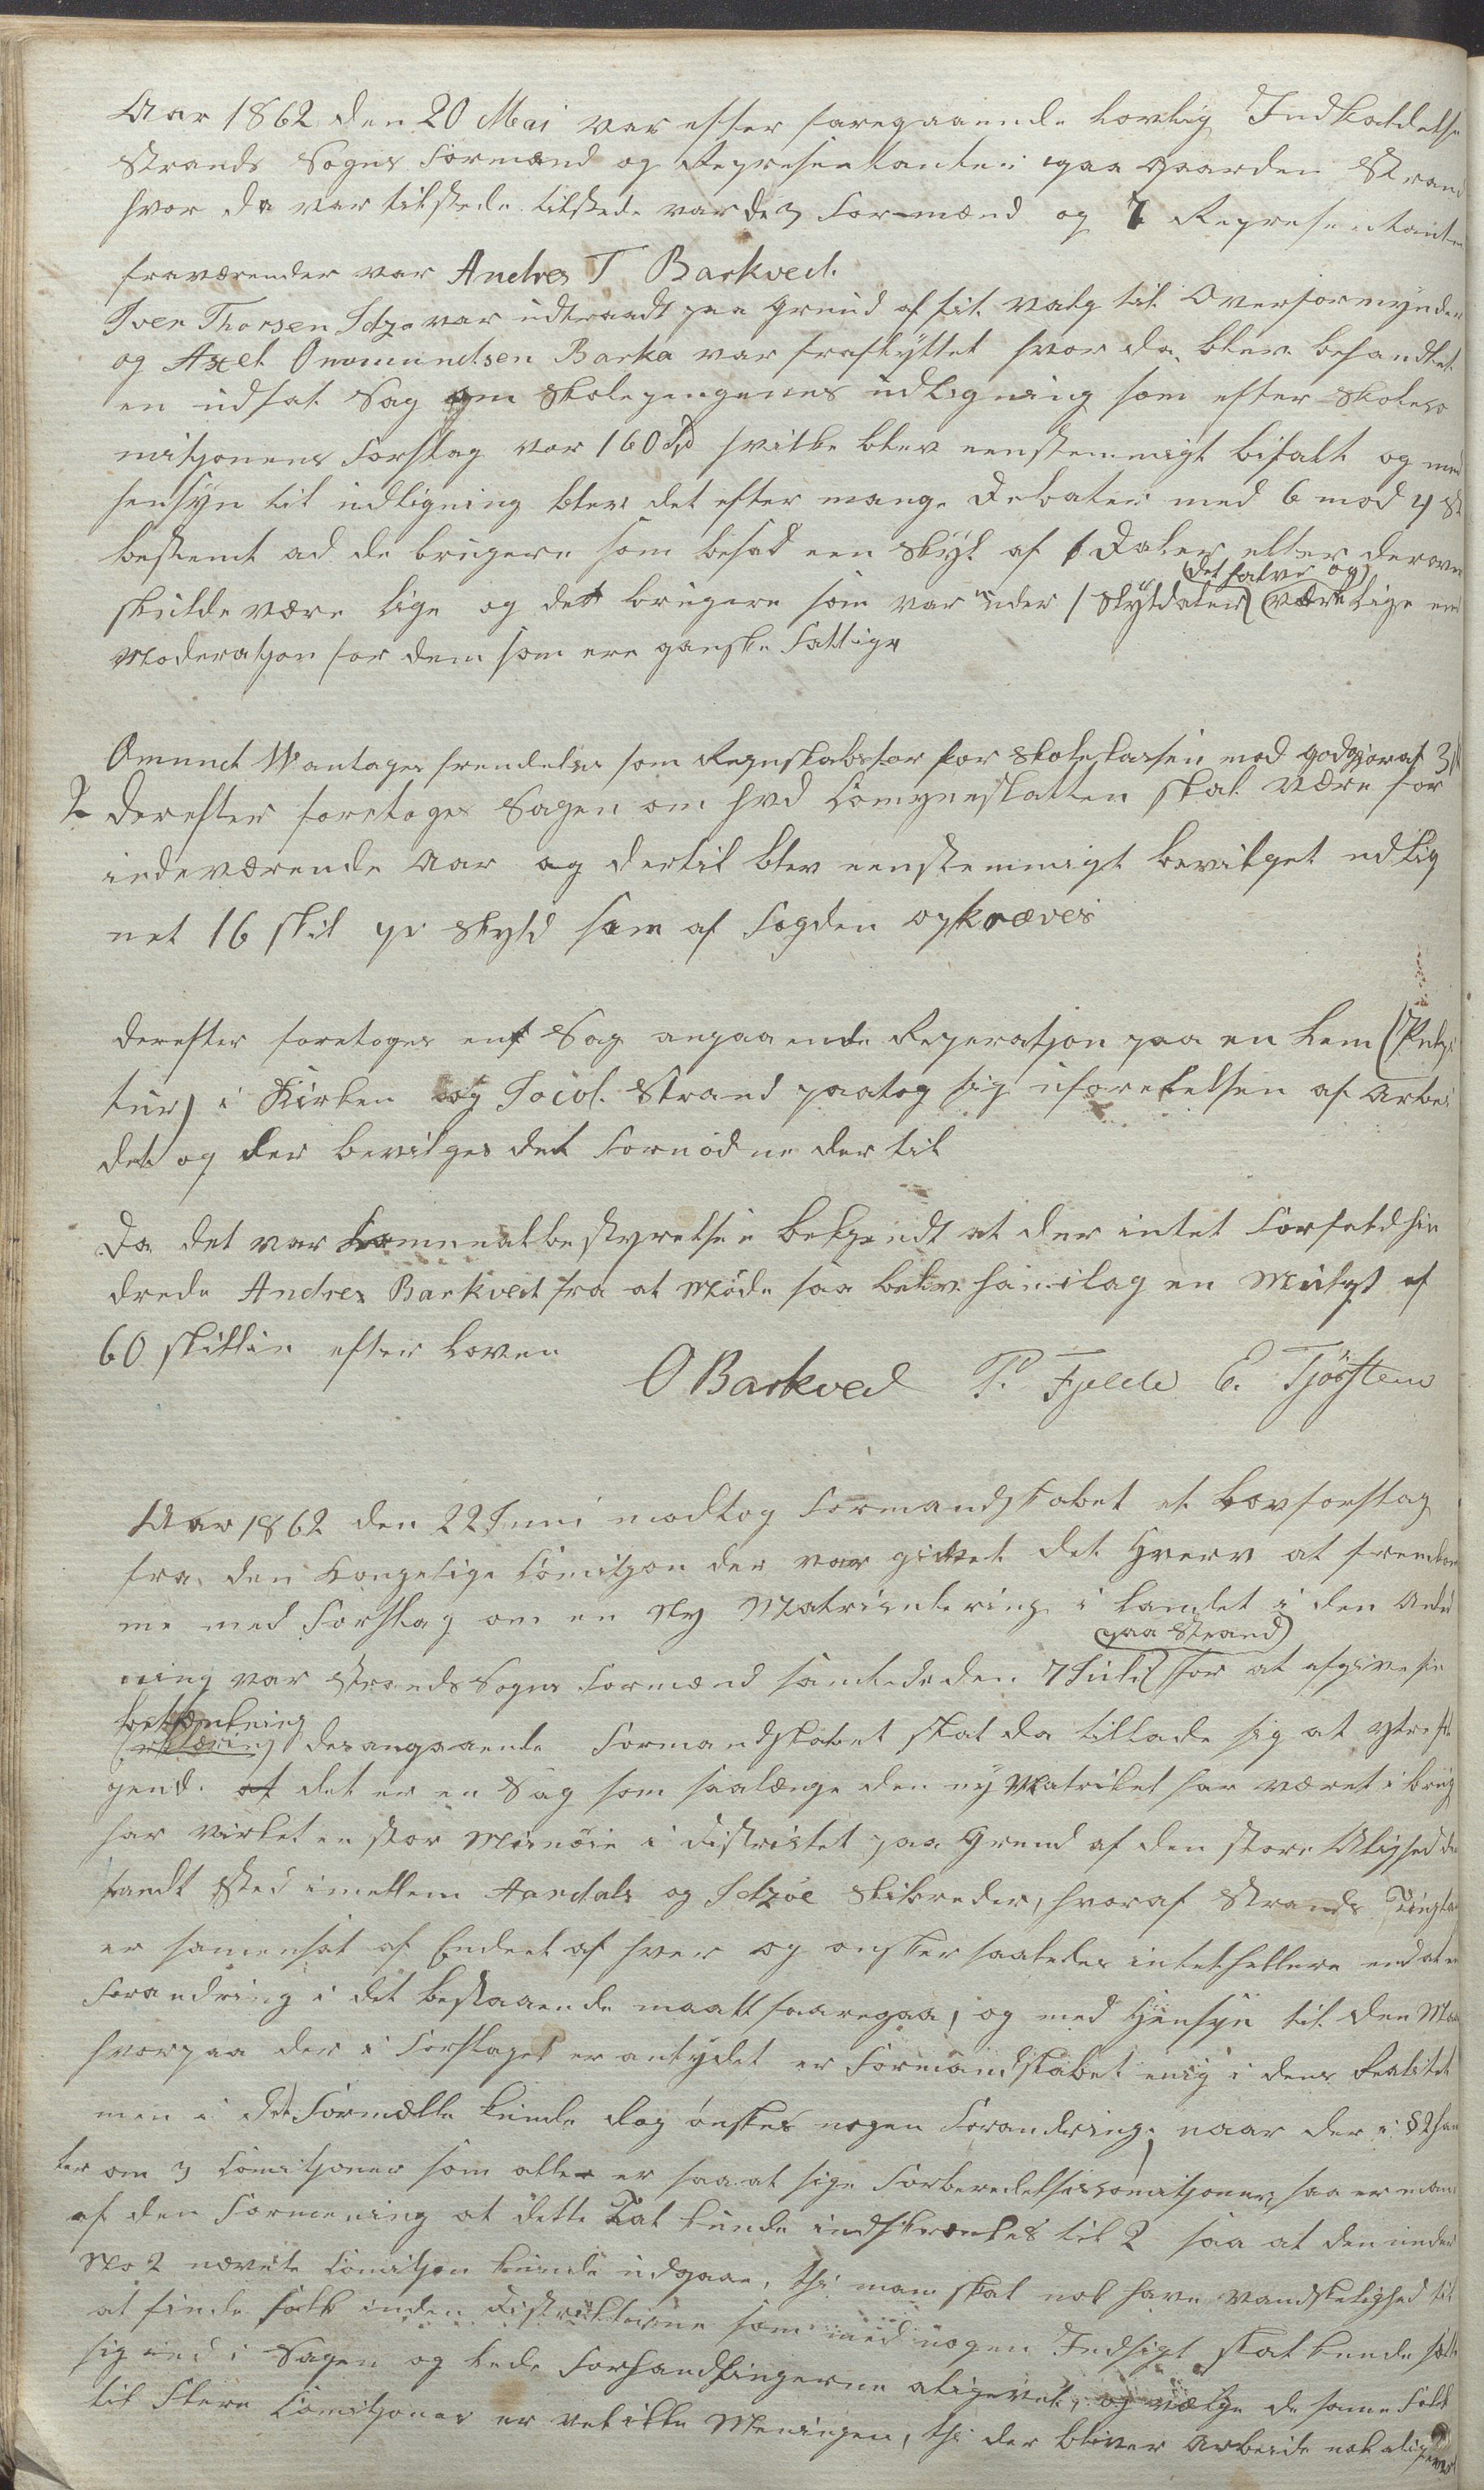 Aar 1862 den 20 Mai var efter foregaaende lovlig Indkaldelse
Strands Sogns Formænd og Representanter paa Gaarden Strand
hvor da var tilstede tilstede var de 3 Formænd og 7 Representanter
fraværender var Andres T Barkved.
Iver Thorsen Idzø var udtraadt paa Grund af sit Valg til Overformynder
og Axel Omundsen Barka var fraflyttet hvor da blev behandlet
en udsat Sag om Skolepengenes udligning som efter Skoleco
mitjonens Forslag var 160 Spd hvilke blev eenstemmigt bifalt og med
hensyn til udligning blev det efter mange Debater med 6 mod 4 St
bestemt ad de brugere som besad een Skyl af 1 Daler eller derover
(det halve og)
skulde være lige og det brugere som var under 1 Skyldaler være Lige med
Moderatjon for dem som ere ganske Fattige
Omund W antages fremdeles som Regnskabsfør for Skolekassen mod godtgjørelse 3
2 derefter foretoges Sagen om hvd Comyneskatten skal være for
indeværende Aar og dertil blev eenstemmigt bevilget udlig
net 16 skil pr Skyld som af Fogden opkræves
derefter foretoges en Sag angaaende Reperatjon paa en Lem (Pulpi
tur) i Kirken og Tocol. Strand paatog sig udførelsen af Arbei
det og der bevilges det Fornødne dertil
Da det var Kommunalbestyrelsen bekjendt at der intet Forfald hin
drede Andres Barkved fra at Møde saa blev han ilag en Mulgt af
60 skillin efter Loven
O Barkved P. Fjelde E. Tjøstem
Aar 1862 den 22 Juni modtog Formandskabet et Lovforslag
fra den Kongelige Comitjon der var givet det Hverv at fremkom
me med Forslag om en Ny Matriculering i Landet i den Anled
(paa Strand)
ning var Strands Sogns Formænd samlede den 7 Juli for at afgive sin
betænkning
erklæring desangaaende Formandskabet skal da tillade sig at ytre føl
gend. at det er en Sag som saalænge den ny Matrikel har været i brug
har virket en stor Misnøie i Districtet paa Grund af den store Ulighed der
fandt Sted imellem Aardals og Idzøe Skibreder, hvoraf Strands Tinglag
er samensat af Endeel af hver og ønsker saaledes intet hellere end at en
Forandring i det bestaaende maatt foregaa, og med Hensyn til den Maade
hvorpaa der i Forslaget er antydet er Formandskabet enig i dens Realitet
men i det Formelle kunde dog ønskes nogen Forandring; naar der i § 2 hand
ler om 3 Comitjoner som alle er saa at sige Forberedelsescomitjoner, saa er man
af den Formening at dette Tal kunde indskrænkes til 2 saa at den under
No 2 nævnte Comitjon kunde udgaae, thi man skal nok have Vandskelighed til
at finde Folk inden Districterne som med nogen Indsigt skal kunde sætte
sig ind i Sagen og lede Forhandlingerne aligevel, og vælge de samme Folk
til Flere Comitjoner er vel ikke Meningen, thi der bliver Arbeide nok aligevel